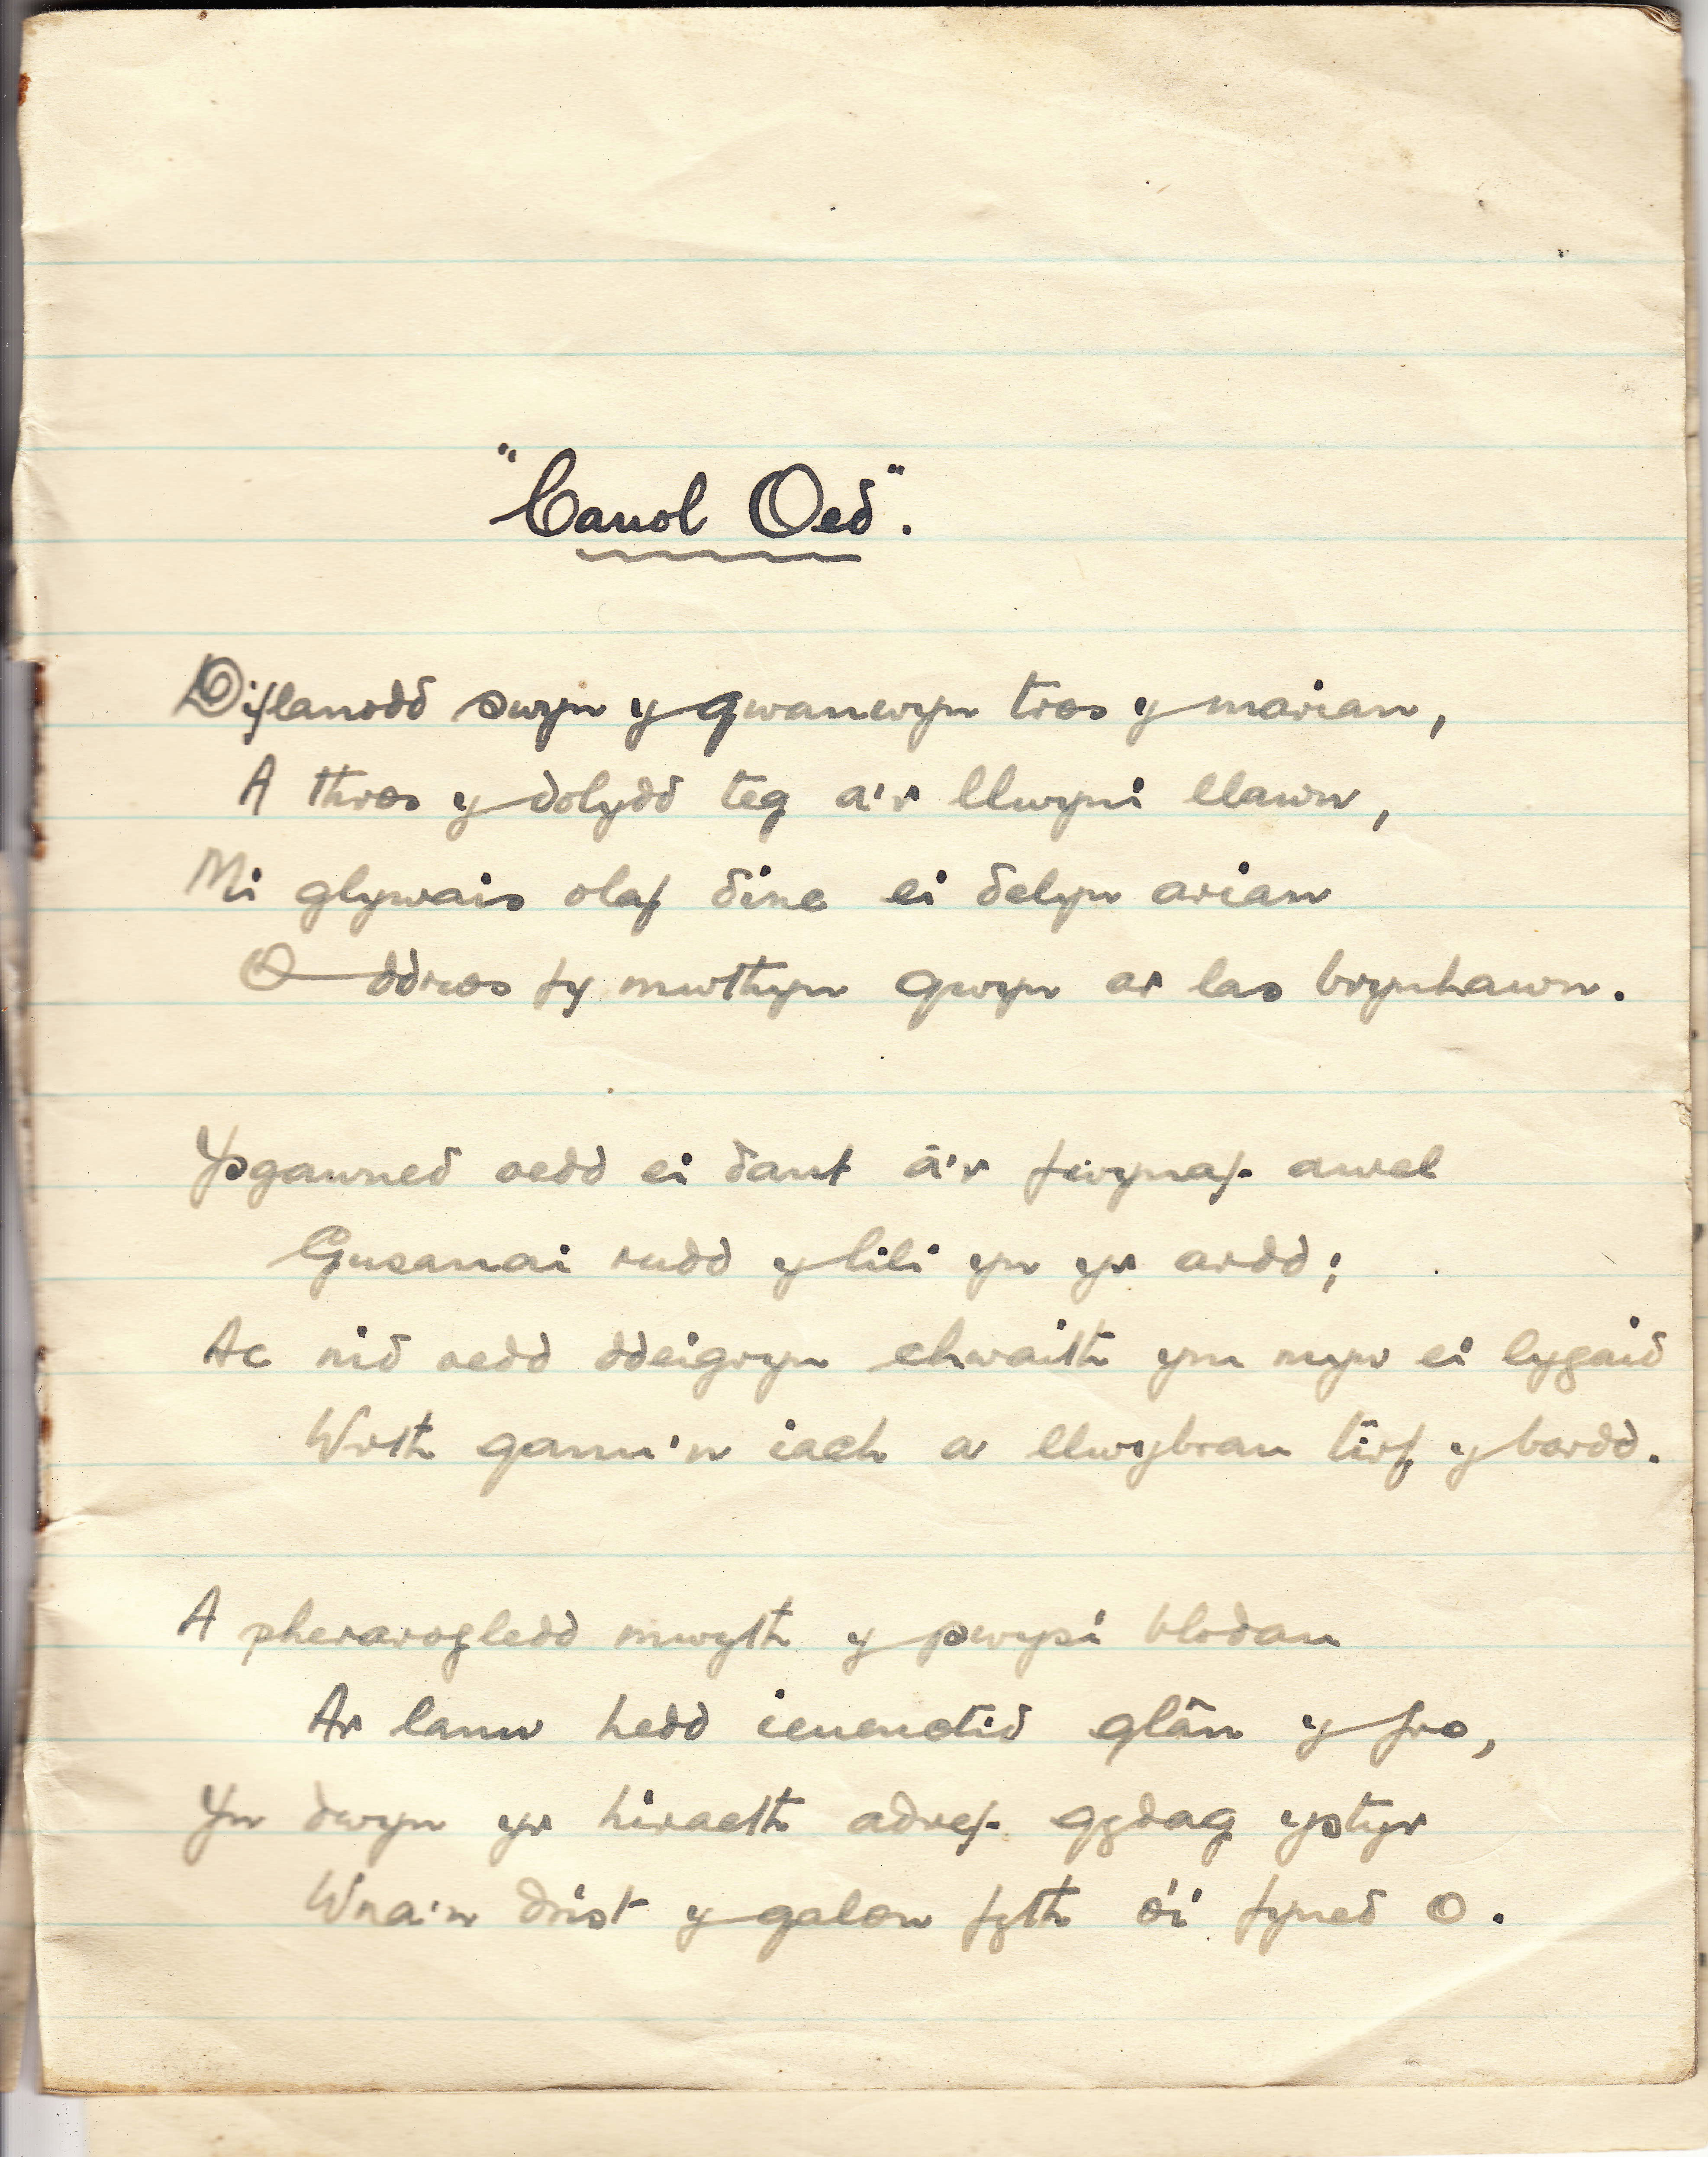 "Canol Oed".
Diflanodd swyn y gwanwyn tros y marian,
A thros y dolydd teg a'r llwyni llawn,
Mi glywais olaf dinc ei delyn arian
O ddrws fy mwthyn gwyn ar las brynhawn.
Ysgawned oedd ei dant â'r fwynaf awel
Gusanai rudd y lili yn yr ardd;
Ac nid oedd ddeigryn chwaith ym myw ei lygaid
Wrth ganu'n iach a llwybrau tirf y bardd.
A pherarogledd mwyth y pwysi blodau
Ar lanw hedd ieuenctid glân y fro,
Yn dwyn yr hiraeth adref gydag ystyr
Wna'n drist y galon fyth o'i fyned O.